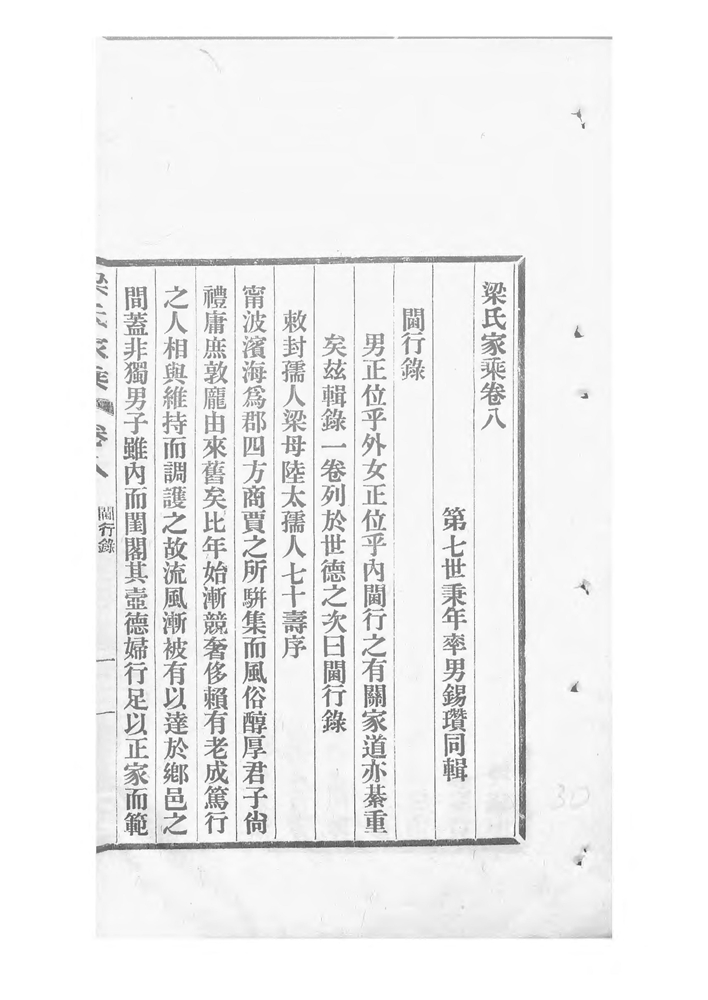 梁氏家乘卷八
第七世秉年率男錫瓚同輯
閫行錄
男正位乎外女正位乎內閫行之有關家道亦綦重
矣玆輯錄一卷列於世德之次曰閫行錄
敕封孺人梁母陸太孺人七十壽序
甯波濱海爲郡四方商賈之所駢集而風俗醇厚君子尙
禮庸庶敦龐由來舊矣比年始漸競奢侈賴有老成篤行
之人相與維持而調護之故流風漸被有以達於鄉邑之
間蓋非獨男子雖內而閨閣其壼德婦行足以正家而範
梁氏家乘 卷八 閫行錄 一
30